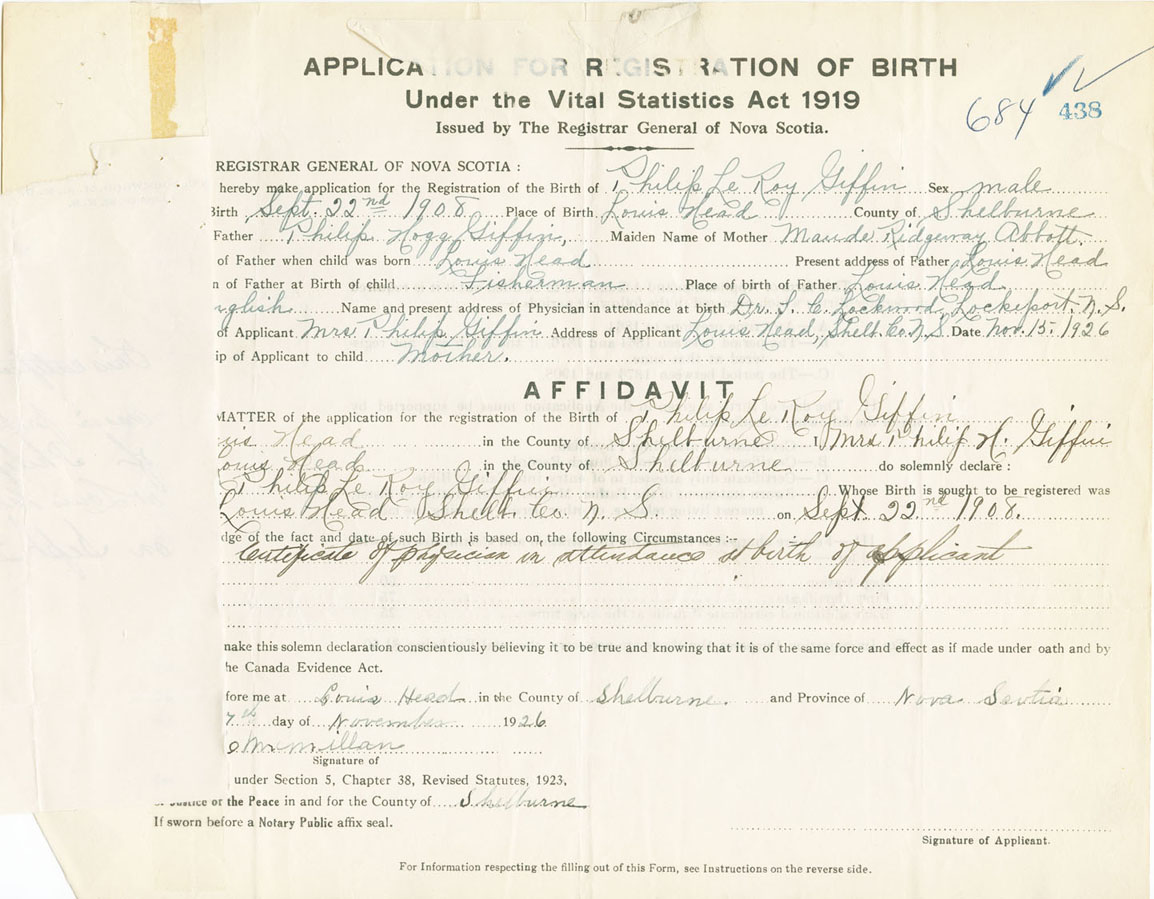 APPLICATION FOR REGISTRATION OF BIRTH
Under the Vital Statistics Act 1919
684 438
Issued by The Registrar General of Nova Scotia.
REGISTRAR GENERAL OF NOVA SCOTIA :
hereby make application for the Registration of the Birth of Philip Le Roy Giffin Sex male
Birth Sept. 22nd 1908 Place of Birth Louis Head County of Shelburne
Father Philip Hogg Giffin, Maiden Name of Mother Maude Ridgeway Abbott.
of Father when child was born Louis Head Present address of Father Louis Head
n of Father at Birth of child Fisherman Place of birth of Father Louis Head
nglish Name and present address of Physician in attendance at birth Dr. Lockwood, Lockeport. N. S.
of Applicant Mrs Philip Giffin Address of Applicant Louis Head, Shelb. Co. N. S Date Nov. 15. 1926
ip of Applicant to child Mother.
AFFIDAVIT
MATTER of the application for the registration of the Birth of Philip Le Roy Giffin
uis Head in the County of Shelburne I Mrs Philip H. Giffin
ouis Head in the County of Shelburne do solemnly declare :
Philip Le Roy Giffin Whose Birth is sought to be registered was
Louis Head Shelb. Co. N. S. on Sept 22nd 1908.
dge of the fact and date of such Birth is based on the following Circumstances :--
Certificate of physician in attendance at birth of applicant
make this solemn declaration conscientiously believing it to be true and knowing that it is of the same force and effect as if made under oath and by
he Canada Evidence Act.
fore me at Louis Head in the County of Shelburne. and Province of Nova Scotia
7th day of November 1926
McMillan
Signature of
under Section 5, Chapter 38, Revised Statutes, 1923,
Justice of the Peace in and for the County of Shelburne
If sworn before a Notary Public affix seal.
Signature of Applicant.
For Information respecting the filling out of this Form, see Instructions on the reverse side.